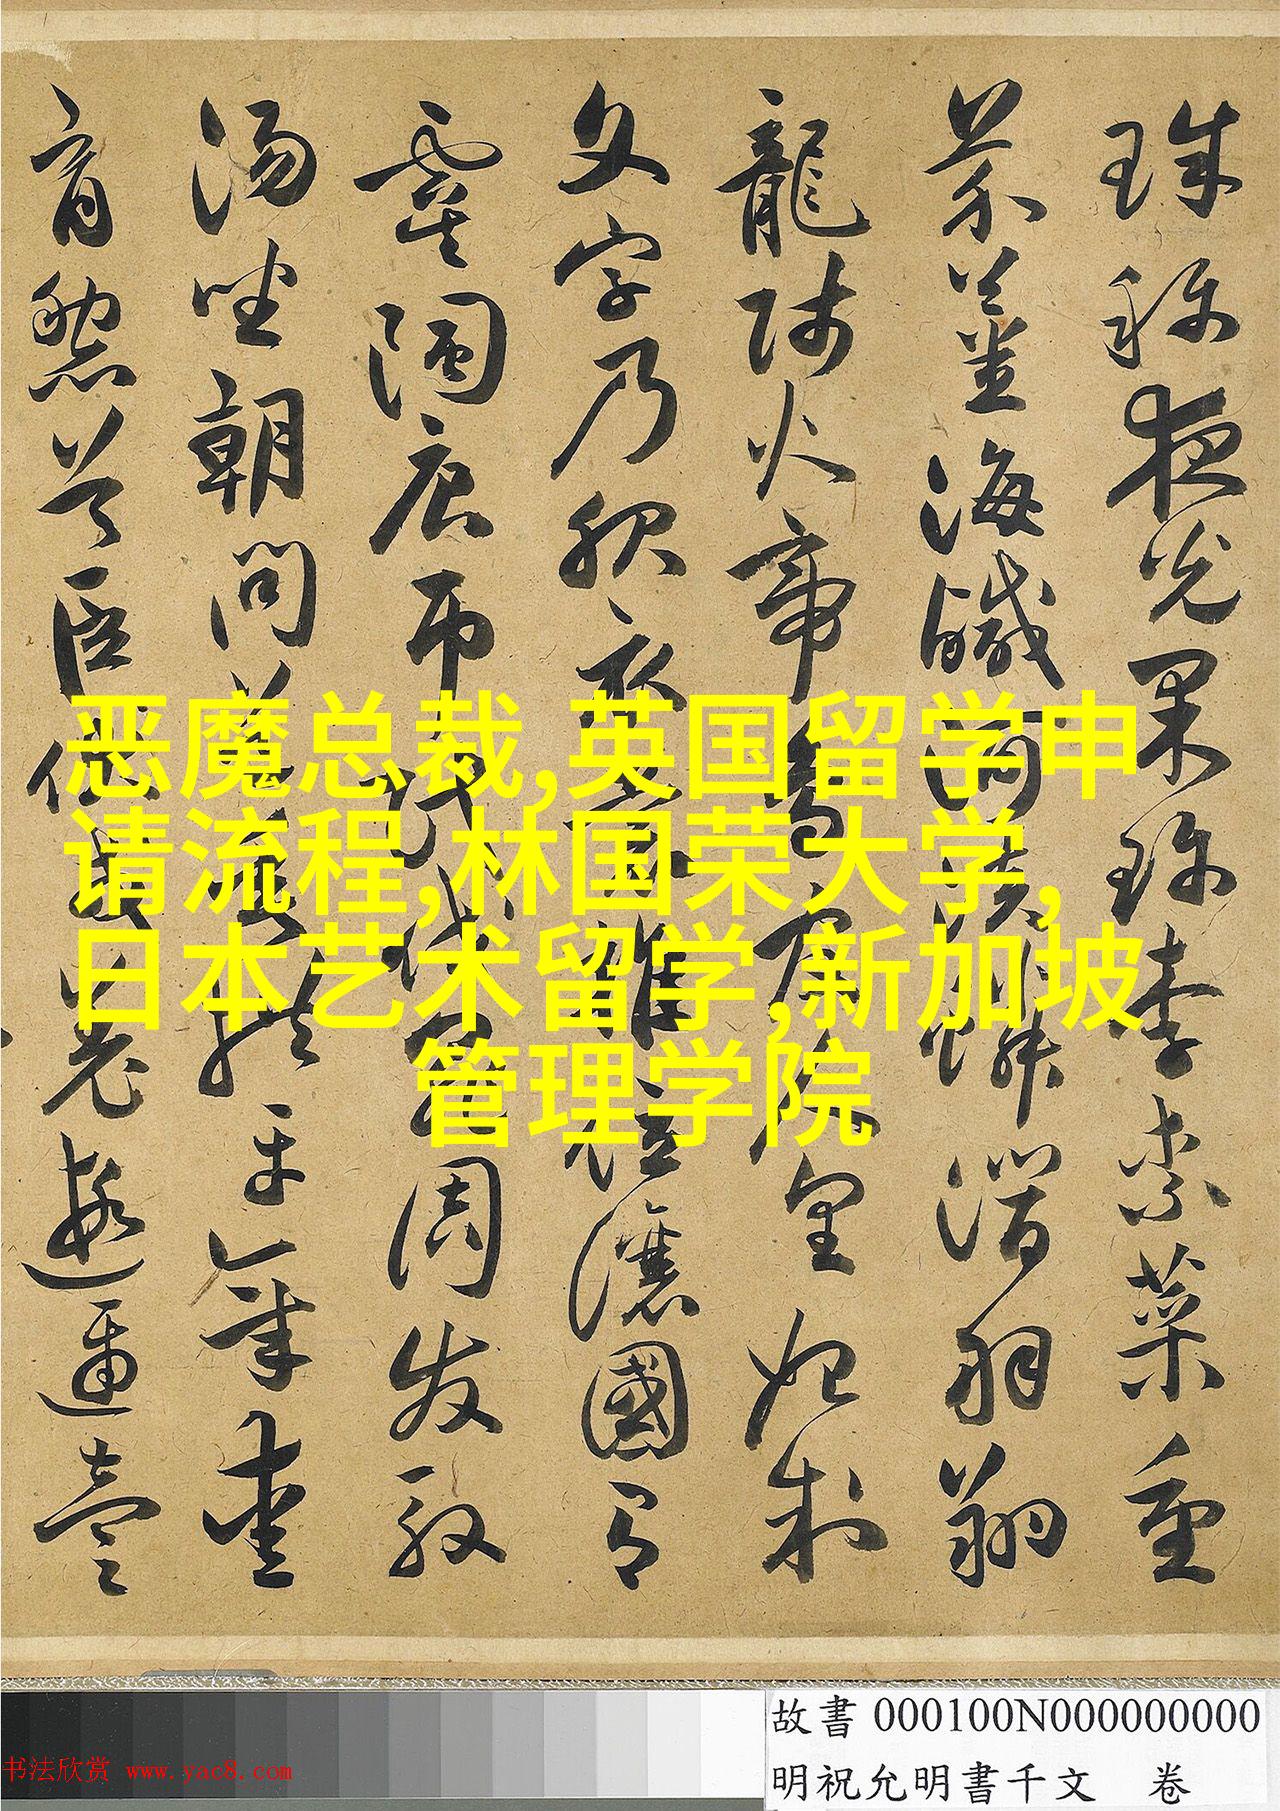 珠稱夜光果珍李柰菜重
芥薑海鹹河淡鱗潛羽翔
龍師火帝鳥官人皇始制
文字乃服衣裳推位讓國有
虞陶唐弔民伐罪周發殷
湯坐朝問道垂拱平章愛
育黎首臣伏戎羌遐邇壹
恶魔总裁,英国留学申
请流程,林国荣大学,
日本艺术留学,新加坡
管理学院
故書 000100N000000000
明祝允明書千文 卷
书法欣赏 www.yac8.com